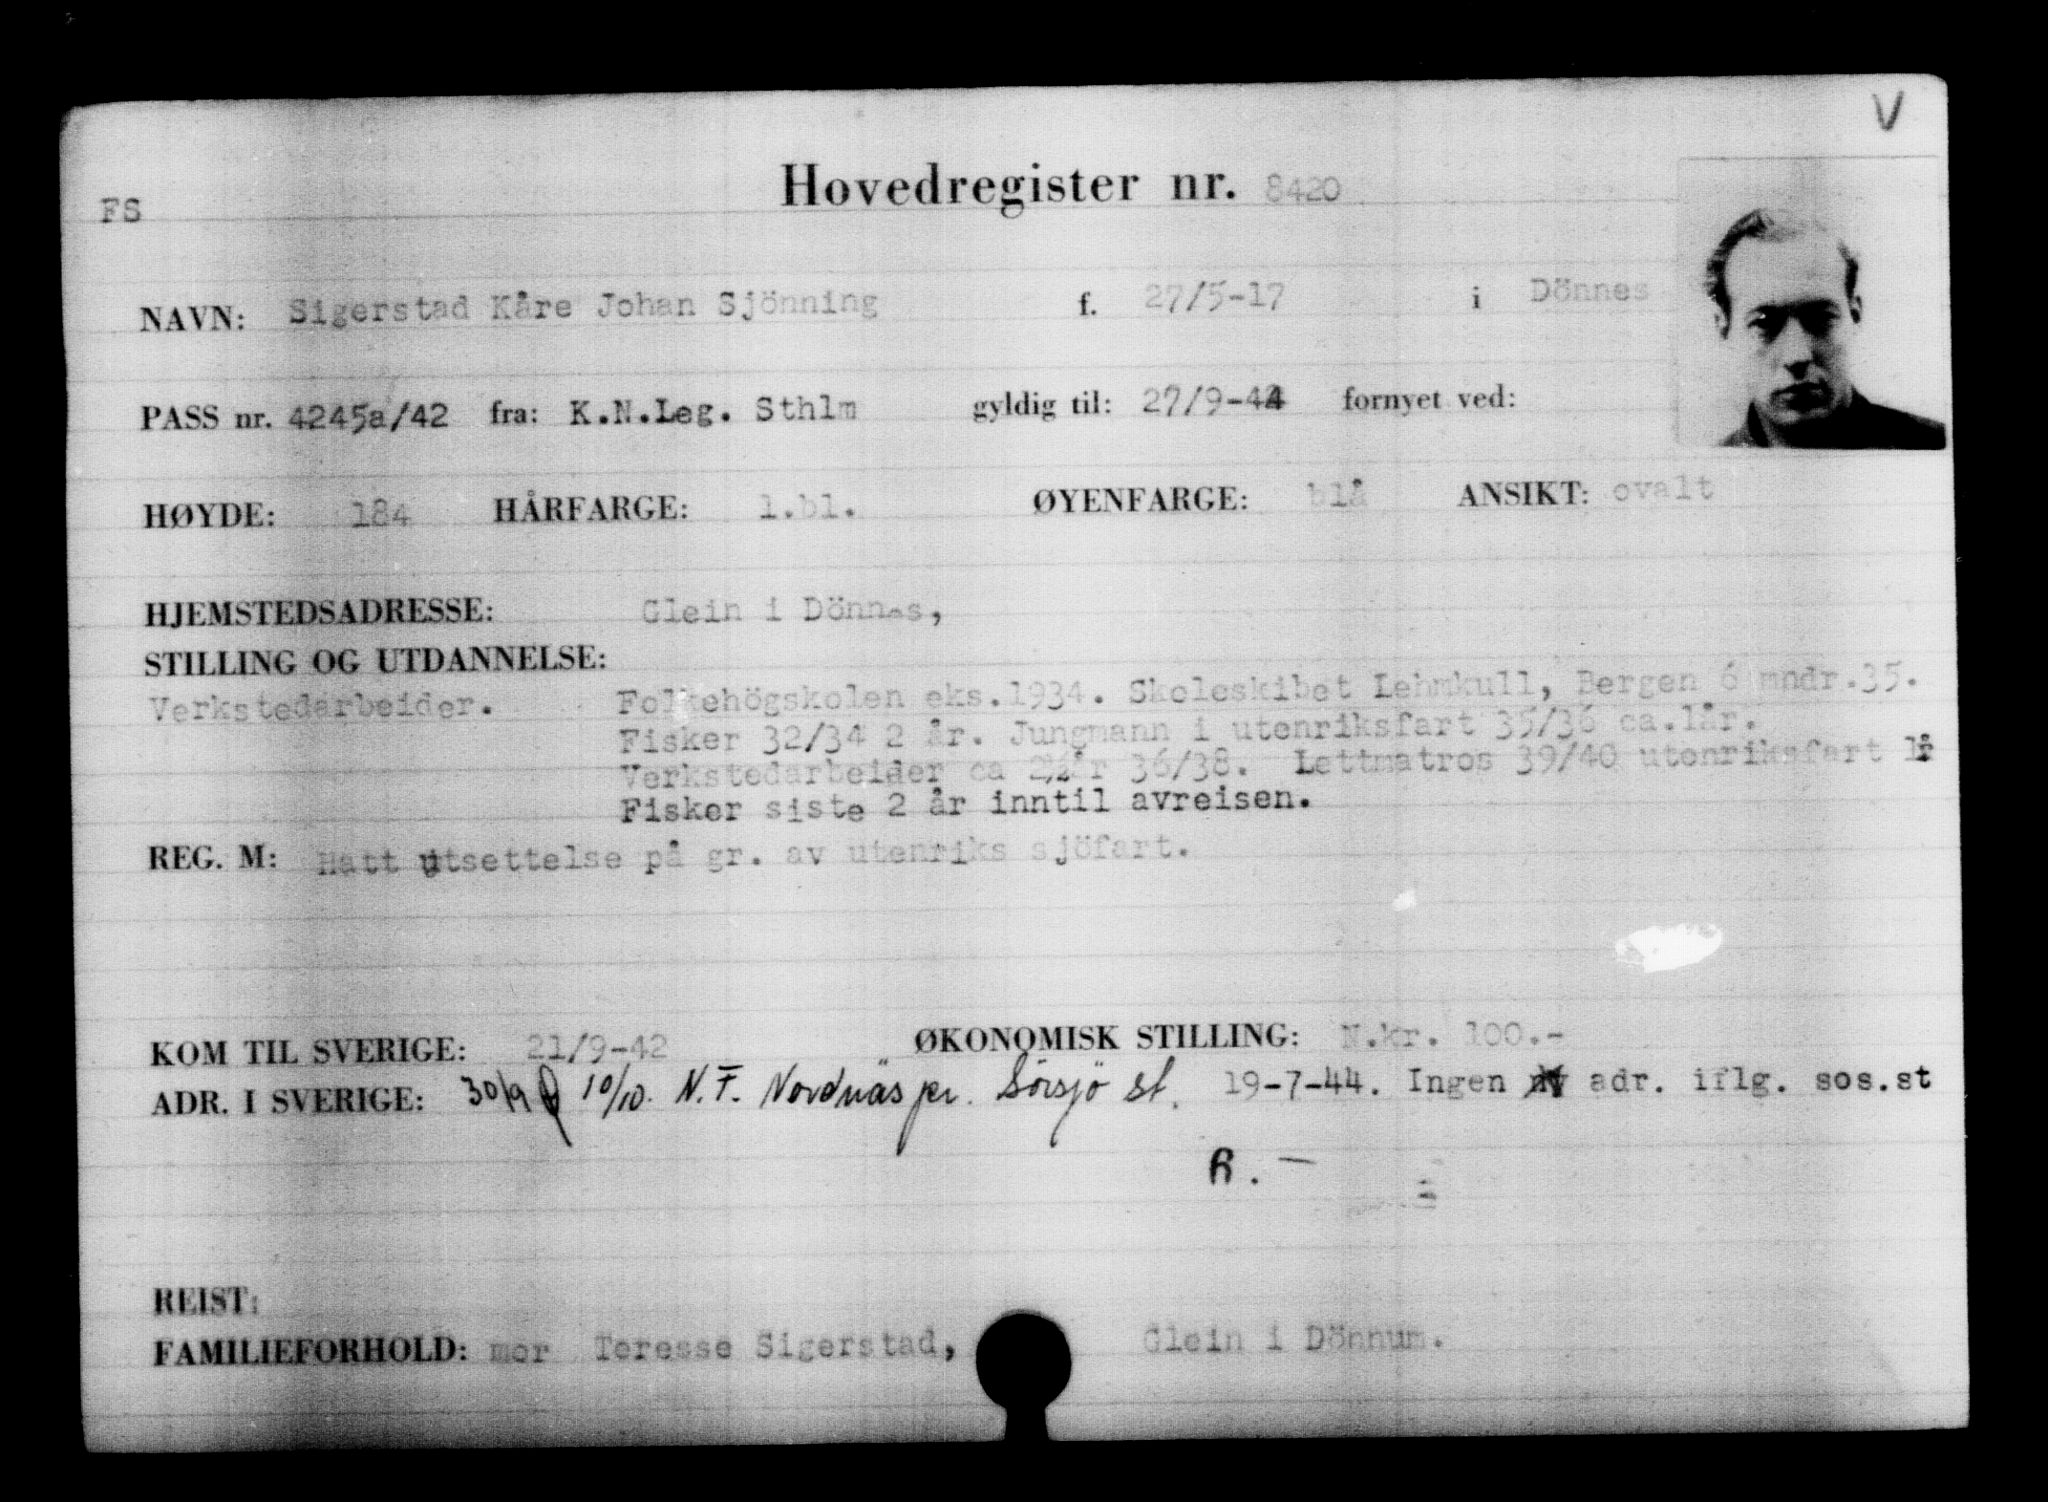 V
Hovedregister nr. 8420
FS
NAVN: Sigerstad Kåre Johan Sjönning f. 27/5-17 i Dönnes
PASS nr. 4245a/42 fra: K.N.Leg. Sthlm gyldig til: 27/9-44 fornyet ved:
HØYDE: 184 HÅRFARGE: l.bl. ØYENFARGE: blå ANSIKT: ovalt
HJEMSTEDSADRESSE: Glein i Dönnes,
STILLING OG UTDANNELSE:
Verkstedarbeider. Folkehögskolen eks.1934. Skoleskibet Lehmkull, Bergen 6 mndr.35.
Fisker 32/34 2 år. Jungmann i utenriksfart 35/36 ca.1år.
Verkstedarbeider ca år 36/38. Lettmatros 39/40 utenriksfart
Fisker siste 2 år inntil avreisen.
REG. M: Hatt utsettelse på gr. av utenriks sjöfart.
KOM TIL SVERIGE: 21/9-42 ØKONOMISK STILLING: N.kr. 100.-
ADR. I SVERIGE: 30/9 10/10. N.F. Nordnäs pr. Sörsjö st. 19-7-44. Ingen ny adr. iflg. sos.st
R. —
REIST:
FAMILIEFORHOLD: mor Teresse Sigerstad, Glein i Dönnum.